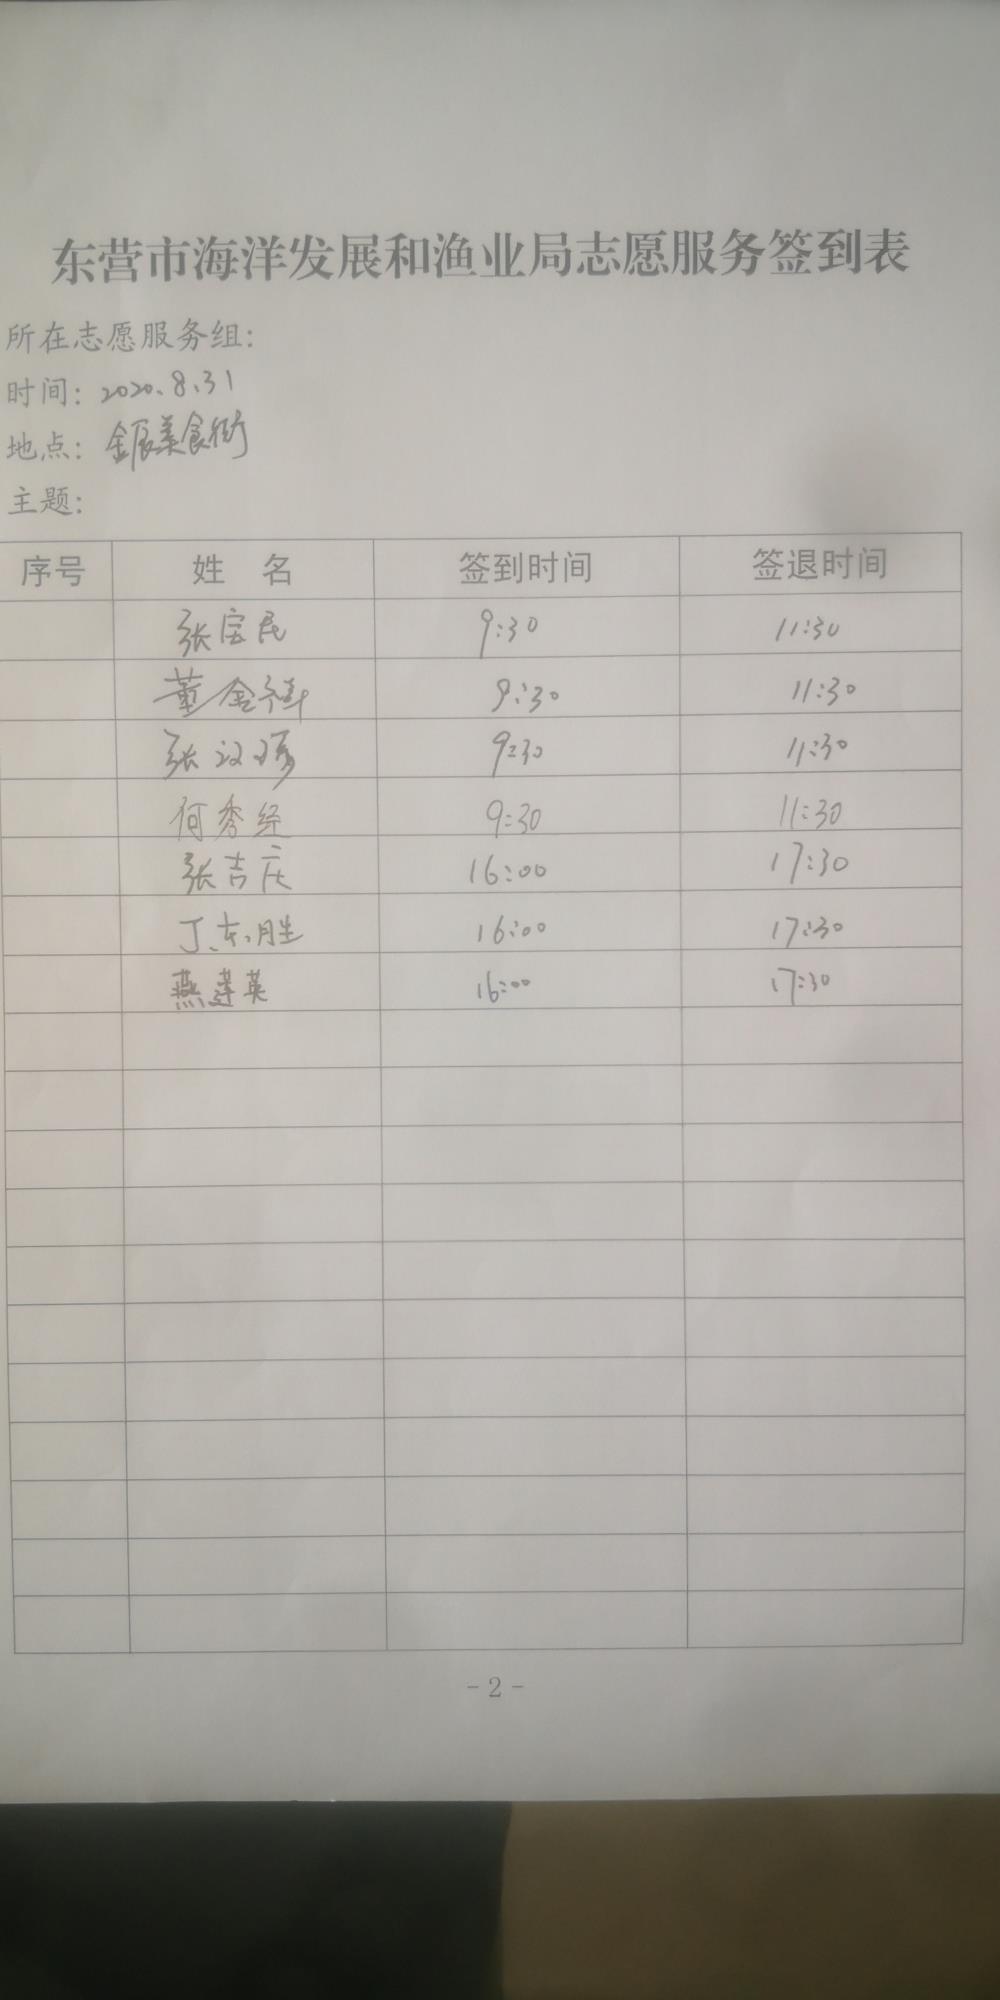 东营市海洋发展和渔业局志愿服务签到表
所在志愿服务组:
时间: 2020.8.31
地点: 金辰美食街
主题:
序号 姓 名 签到时间 签退时间
张宝民 9:30 11:30
董金祥 9:30 11:30
张 9:30 11:30
何秀经 9:30 11:30
张吉庆 16:00 17:30
丁东胜 16:00 17:30
燕莲英 16:00 17:30
-2-